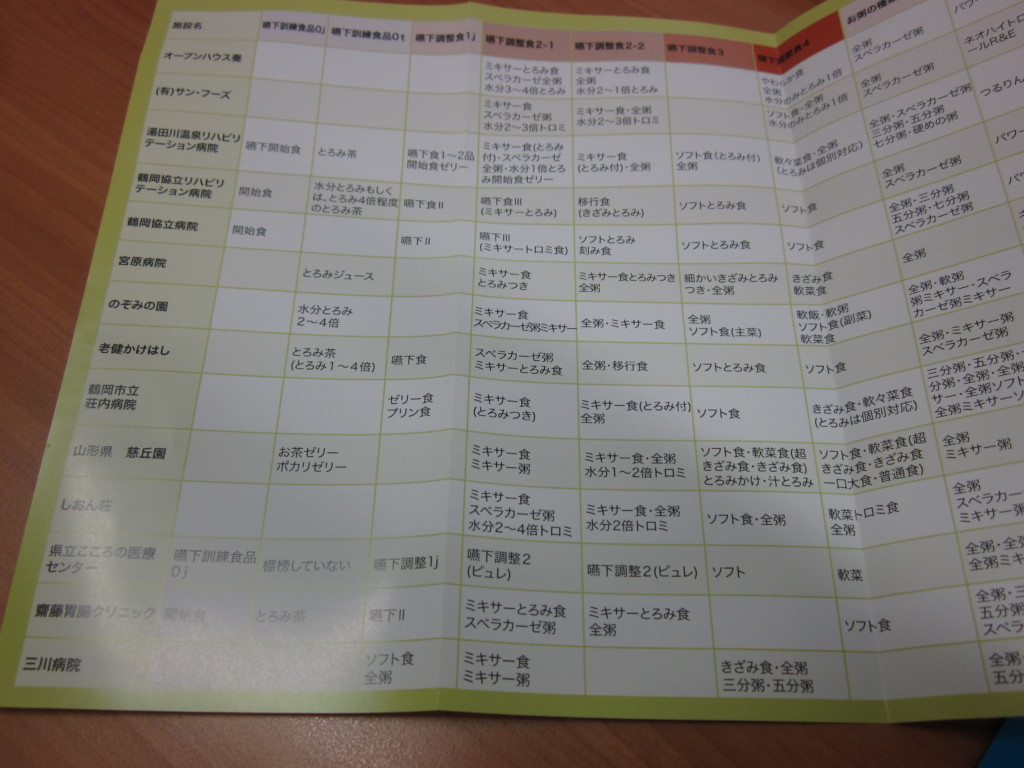 施設名 嚥下訓練食品0j 嚥下訓練食品0t 嚥下調整食1j 嚥下調整食2-1 嚥下調整食2-2 嚥下調整食3 嚥下調整食4 お粥の種類
オープンハウス奏
ミキサーとろみ食
スベラカーゼ全粥
水分3〜4倍とろみ
ミキサーとろみ食
全粥
水分2〜1倍とろみ
やわらか食
全粥
水分のみとろみ1倍
全粥
スベラカーゼ粥
(有)サン・フーズ
ミキサー食
スベラカーゼ粥
水分2〜3倍トロミ
ミキサー食・全粥
水分2〜3倍トロミ
ソフト食・全粥
水分のみとろみ1倍
全粥
スベラカーゼ粥
ネオハイトロ
ールR&E
湯田川温泉リハビリ
テーション病院
嚥下開始食
とろみ茶
嚥下食1〜2品
開始食ゼリー
ミキサー食(とろみ
付)・スベラカーゼ
全粥・水分1倍とろ
み開始食ゼリー
ミキサー食
(とろみ付)・全粥
ソフト食(とろみ付)
全粥
軟々菜食・全粥
(とろみは個別対応)
全粥・スベラカーゼ粥
三分粥・五分粥
七分粥・硬めの粥
つるりん
鶴岡協立リハビリ
テーション病院
開始食
水分とろみもしく
は、とろみ4倍程度
のとろみ茶
嚥下食II
嚥下食III
(ミキサーとろみ)
移行食
(きざみとろみ)
ソフトとろみ食
ソフト食
全粥
スベラカーゼ粥
パワー
鶴岡協立病院
開始食
嚥下II
嚥下III
(ミキサートロミ食)
ソフトとろみ
刻み食
ソフトとろみ食
ソフト食
全粥・三分粥
五分粥・七分粥
スベラカーゼ粥
宮原病院
とろみジュース
ミキサー食
とろみつき
ミキサー食とろみつき
全粥
細かいきざみとろみ
つき・全粥
きざみ食
軟菜食
全粥
のぞみの園
水分とろみ
2〜4倍
ミキサー食
スベラカーゼ粥ミキサー
全粥・ミキサー食
全粥
ソフト食(主菜)
軟飯・軟粥
ソフト食(副菜)
軟菜食
全粥・軟粥
粥ミキサー・スベラ
カーゼ粥ミキサー
老健かけはし
とろみ茶
(とろみ1〜4倍)
嚥下食
スベラカーゼ粥
ミキサーとろみ食
全粥・移行食
ソフトとろみ食
ソフト食
全粥・ミキサー粥
スベラカーゼ粥
鶴岡市立
荘内病院
ゼリー食
プリン食
ミキサー食
(とろみつき)
ミキサー食(とろみ付)
全粥
ソフト食
きざみ食・軟々菜食
(とろみは個別対応)
三分粥・五分粥・
分粥・全粥・全粥
サー・全粥ソフト
全粥ミキサーソ
山形県 慈丘園
お茶ゼリー
ポカリゼリー
ミキサー食
ミキサー粥
ミキサー食・全粥
水分1〜2倍トロミ
ソフト食・軟菜食(超
きざみ食・きざみ食)
とろみかけ・汁とろみ
ソフト食・軟菜食(超
きざみ食・きざみ食
一口大食・普通食)
全粥
ミキサー粥
しおん荘
ミキサー食
スベラカーゼ粥
水分2〜4倍トロミ
ミキサー食・全粥
水分2倍トロミ
ソフト食・全粥
軟菜トロミ食
全粥
全粥
スベラカー
ミキサー粥
県立こころの医療
センター
嚥下訓練食品
0j
標榜していない
嚥下調整1j
嚥下調整2
(ピュレ)
嚥下調整2(ピュレ)
ソフト
軟菜
全粥・全
全粥ミキ
齋藤胃腸クリニック
開始食
とろみ茶
嚥下II
ミキサーとろみ食
スベラカーゼ粥
ミキサーとろみ食
全粥
ソフト食
全粥・三
五分粥
スベラ
三川病院
ソフト食
全粥
ミキサー食
ミキサー粥
きざみ食・全粥
三分粥・五分粥
全粥
五分